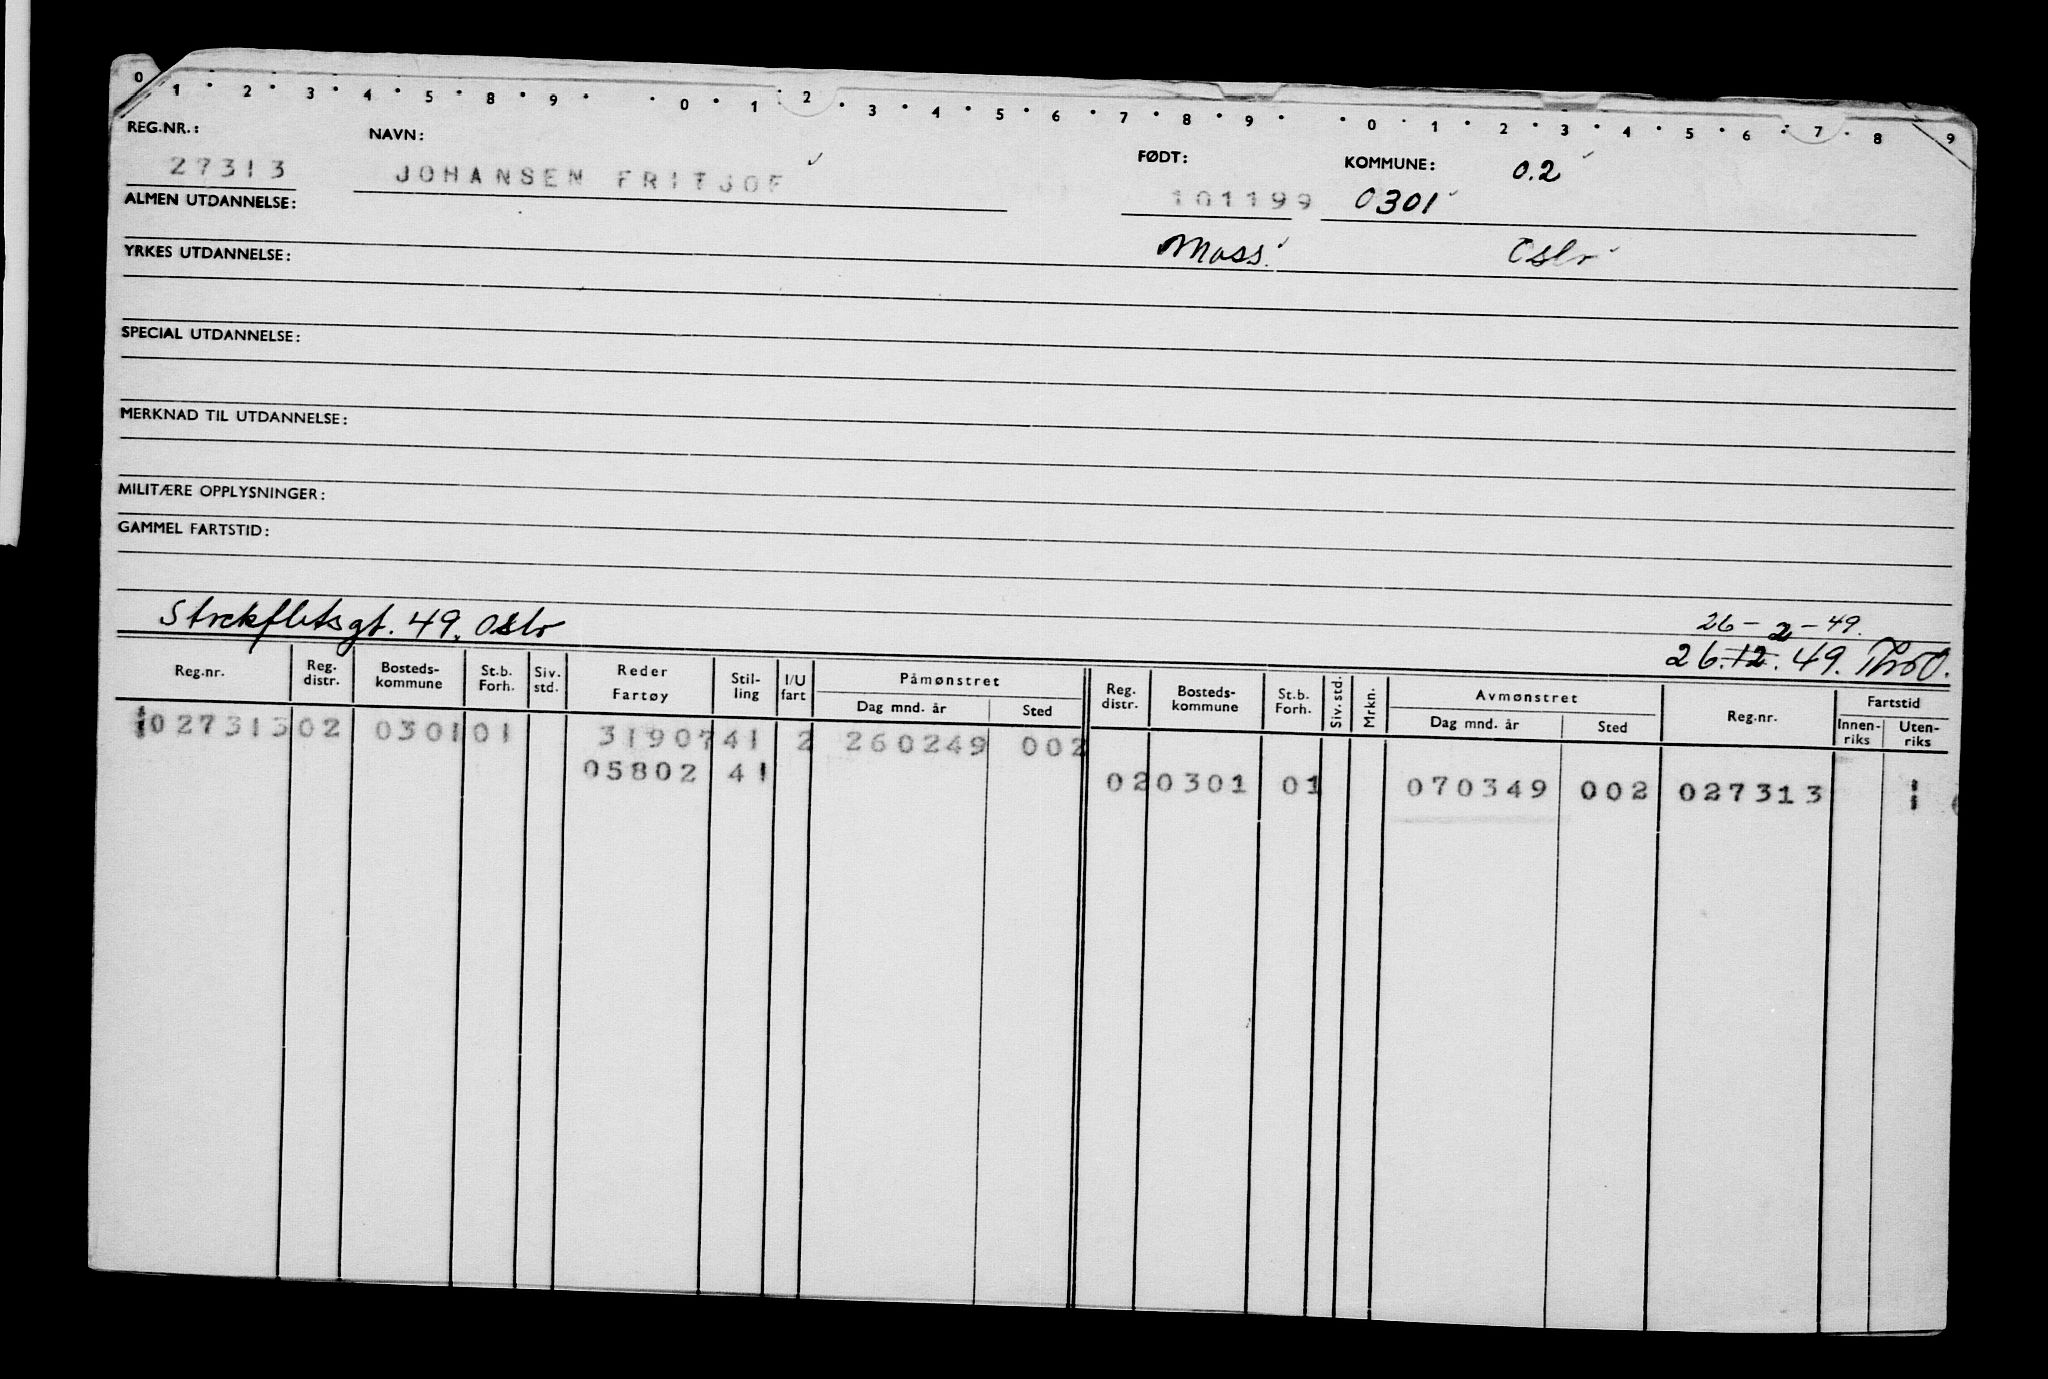 0 1 · 2 · 3 · 4 · 5 · 8 · 9 · · 0 · 1 · 2 · 3 · 4 · 5 · 6 · 7 · 8 · 9 · · 0 · 1 · 2 · 3 · 4 · 5 · 6 · 7 · 8 9
REG.NR.: NAVN: FØDT: KOMMUNE: 0.2
27313 JOHANSEN FRITJOF 101199 0301
ALMEN UTDANNELSE:
YRKES UTDANNELSE: Moss. Oslo
SPECIAL UTDANNELSE:
MERKNAD TIL UTDANNELSE:
MILITÆRE OPPLYSNINGER:
GAMMEL FARTSTID:
49. Oslo 26-2-49.
26.12.49.
Reg.nr. Reg. distr. Bosteds- kommune St.b. Forh. Siv. std. Reder Fartøy Stil- ling I/U fart Påmønstret Dag mnd. år Sted Reg. distr. Bosteds- kommune St.b. Forh. Siv. std. Mrkn. Avmønstret Dag mnd. år Sted Reg.nr. Fartstid Innen- riks Uten- riks
027313 02 0301 01 31907 41 2 260249 002
05802 41 02 0301 01 070349 002 027313